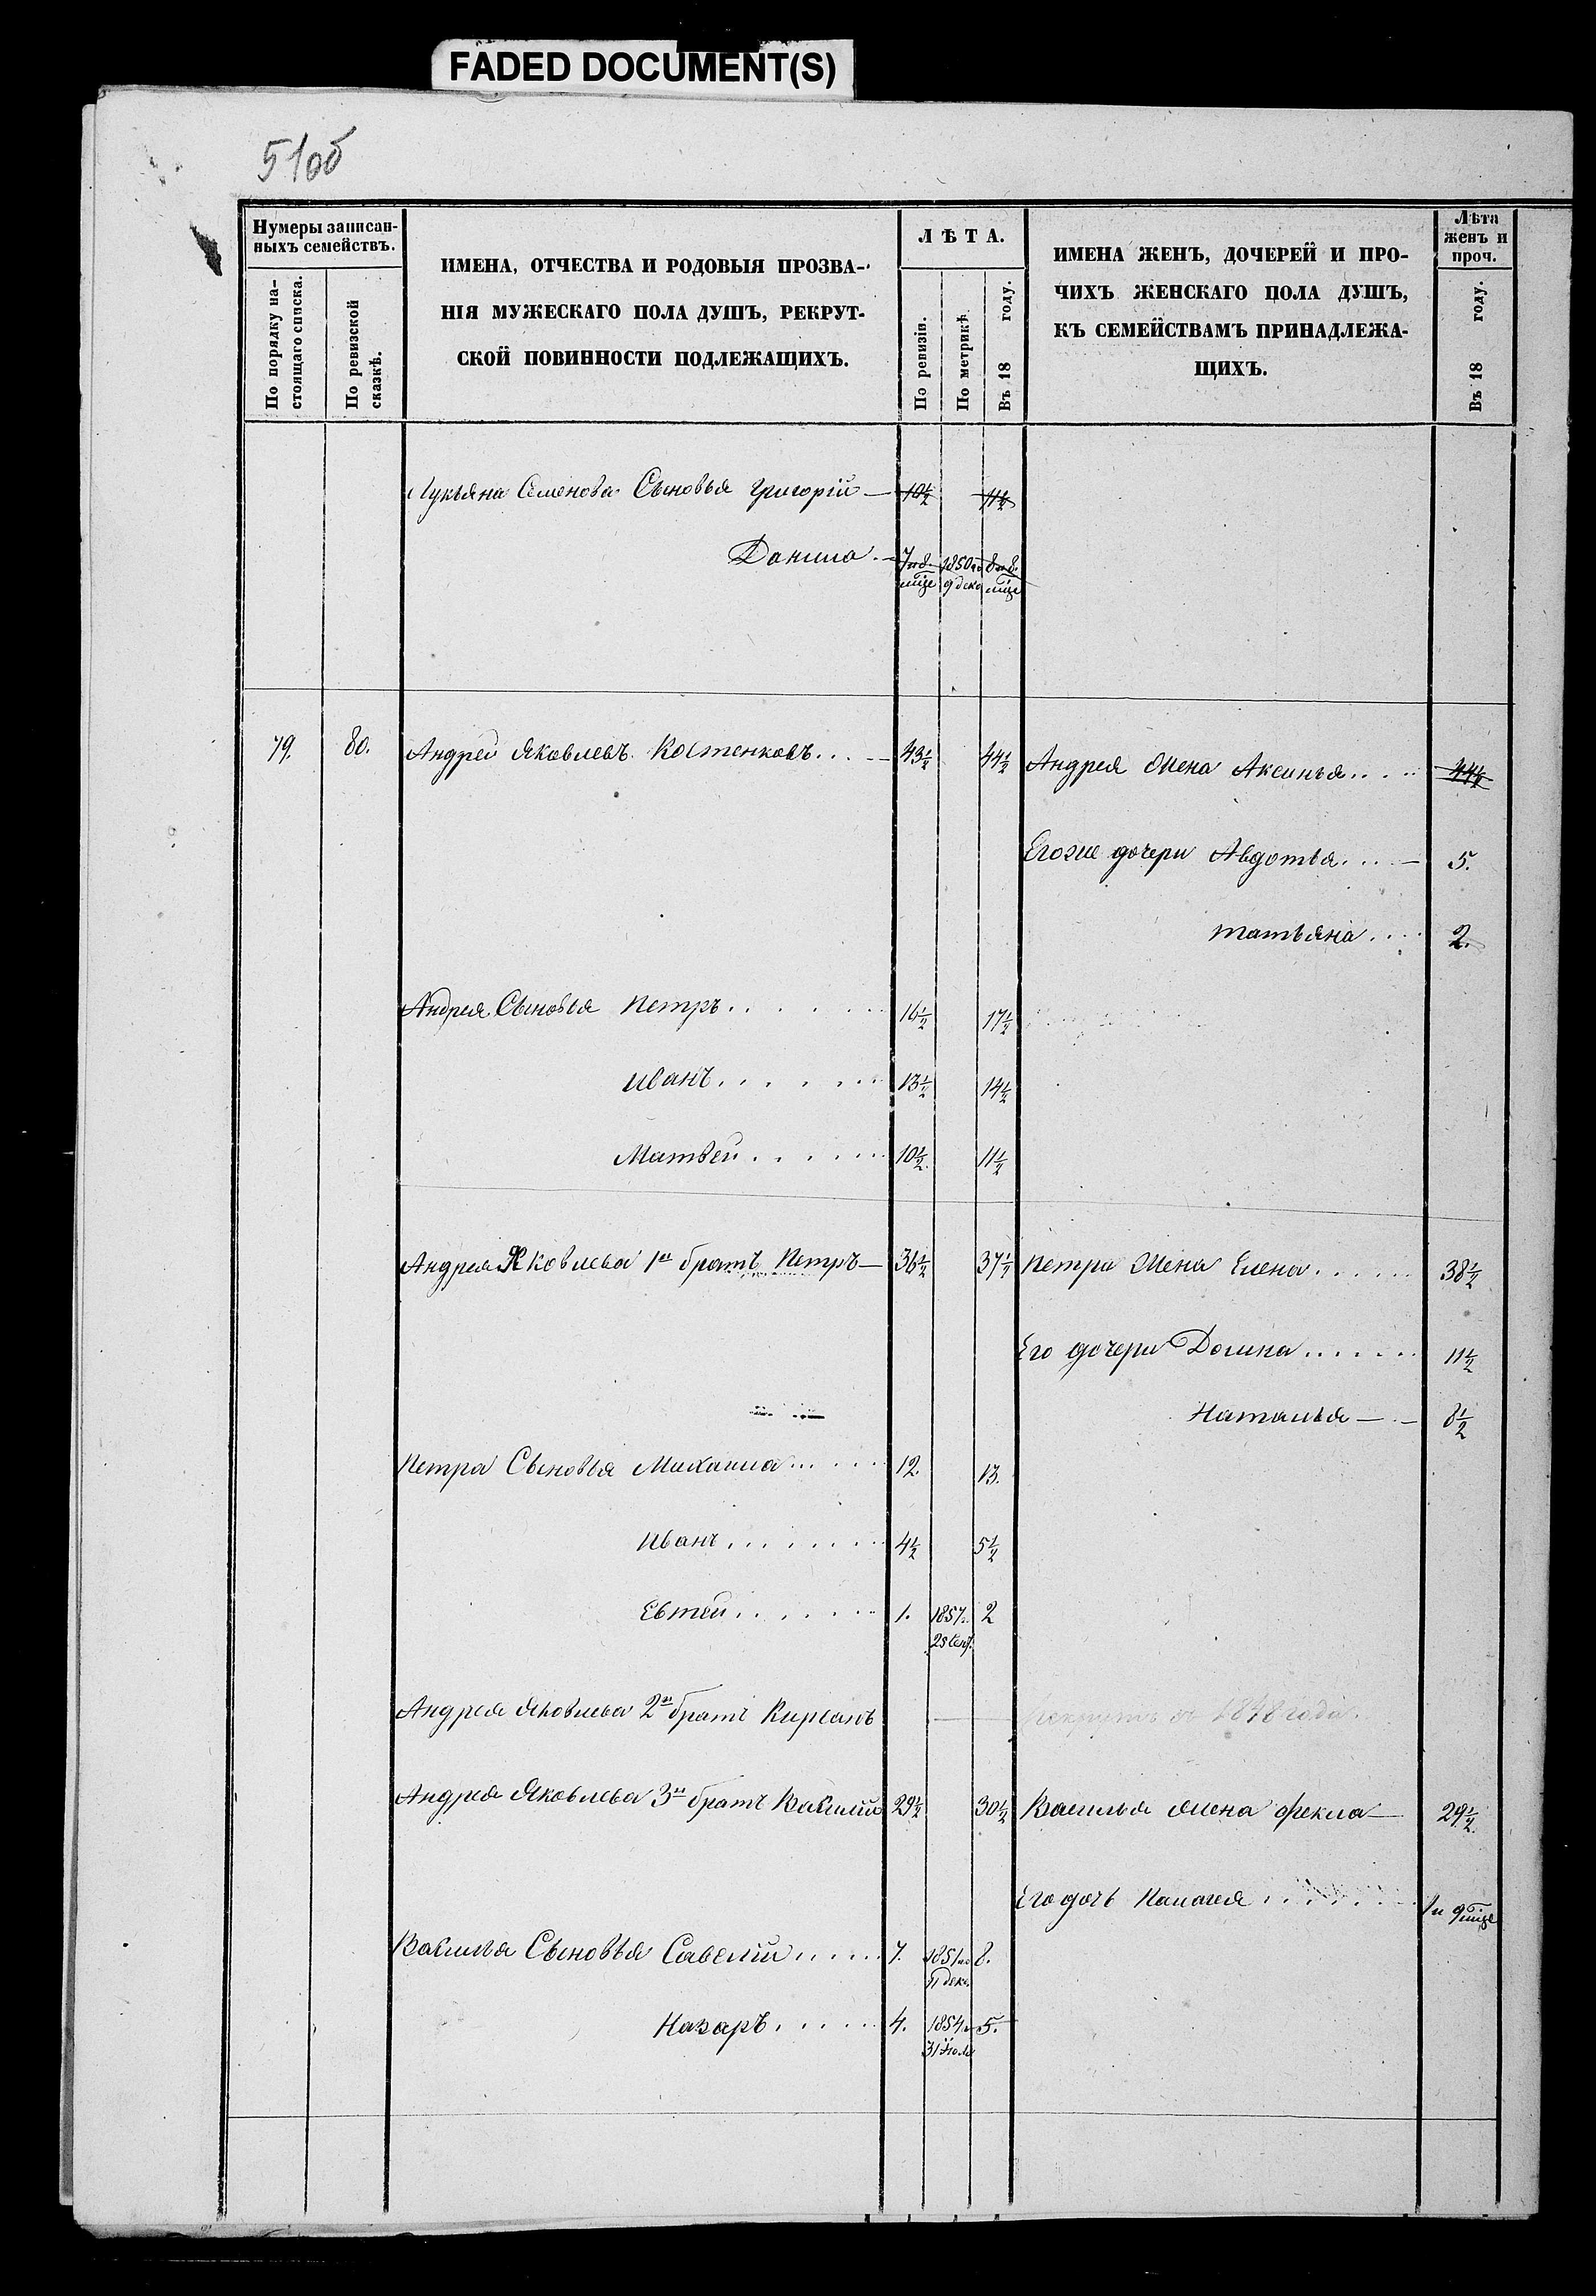 FADED DOCUMENT(S)
51об
Нумеры записан-
ныхъ семействъ.
По порядку на-
стоящаго списка.
По ревизской
сказкѣ.
ИМЕНА, ОТЧЕСТВА И РОДОВЫЯ ПРОЗВА-
НІЯ МУЖЕСКАГО ПОЛА ДУШЪ, РЕКРУТ-
СКОЙ ПОВИННОСТИ ПОДЛЕЖАЩИХЪ.
ЛѢТА.
По ревизіи.
По метрикѣ.
Въ 18 году.
ИМЕНА ЖЕНЪ, ДОЧЕРЕЙ И ПРО-
ЧИХЪ ЖЕНСКАГО ПОЛА ДУШЪ,
КЪ СЕМЕЙСТВАМЪ ПРИНАДЛЕЖА-
ЩИХЪ.
Лѣта
женъ и
проч.
Въ 18 году.
Лукьяна Семенова Сыновья Григорій — 10½ 11½
Данила — 7 и 8 1850 8 и 8
мѣце 9 дек мѣце
79. 80. Андрей Яковлевъ Костенковъ... 43½ 44½ Андрея Жена Аксинья.... 44½
Егоже дочери Авдотья.... 5.
Татьяна.... 2.
Андрея Сыновья Петръ...... 16½ 17½
Иванъ...... 13½ 14½
Матвей...... 10½ 11½
Андрея Яковлева 1й братъ Петръ — 36½ 37½ Петра Жена Елена...... 38½
Его дочери Домна...... 11½
Наталья — 8½
Петра Сыновья Михаила..... 12. 13.
Иванъ...... 4½ 5½
Евтей...... 1. 1857 2
25 Сент.
Андрея Яковлева 2й братъ Кирсанъ — 1848 года.
Андрея Яковлева 3й братъ Василій 29½ 30½ Василья жена Фекла — 29½
Его дочь Палагея...... 1 и 9 мѣце
Василья Сыновья Савелій..... 7. 1851 8.
11 дек.
Назаръ..... 4. 1854 5.
31 Іюля